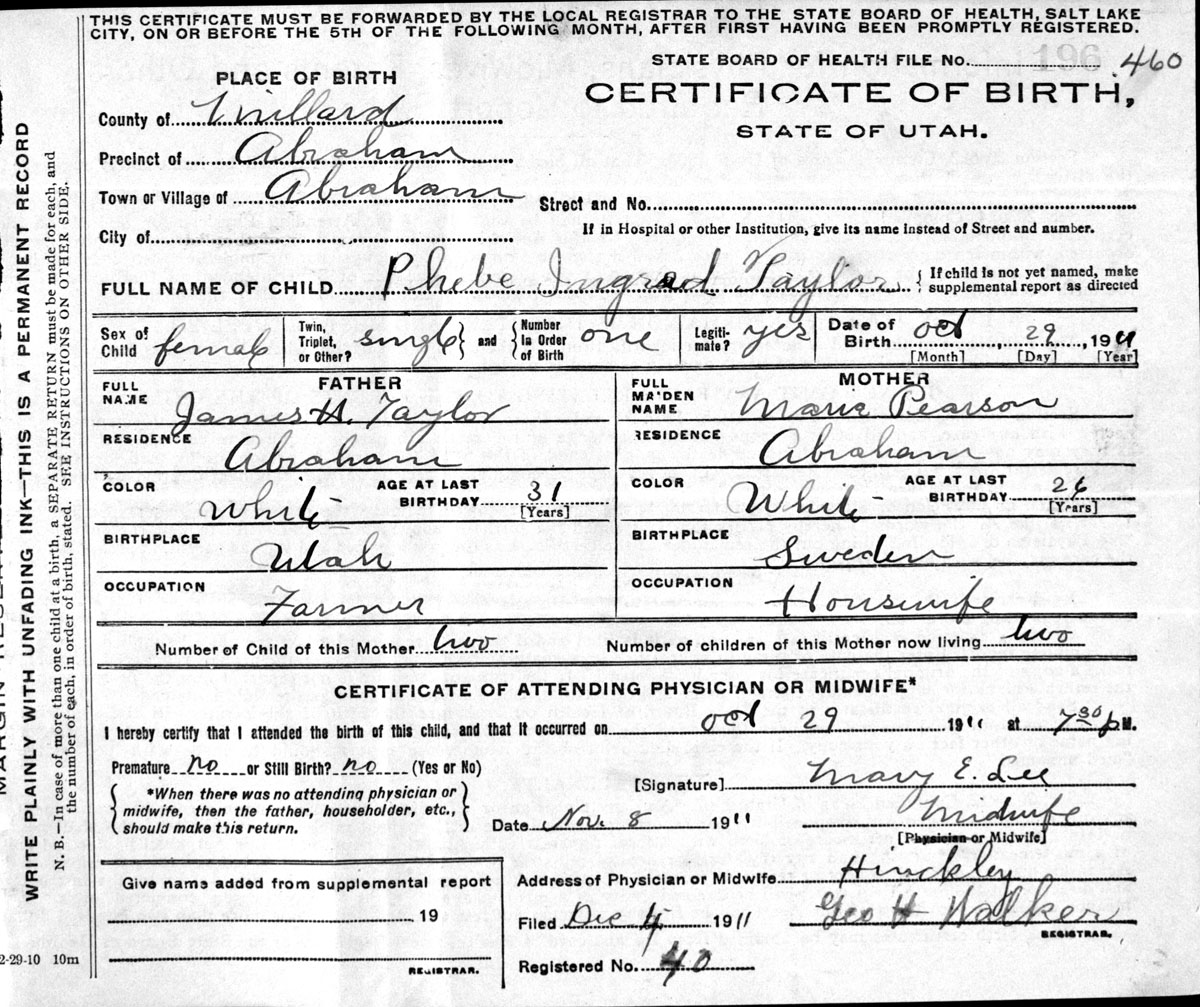 THIS CERTIFICATE MUST BE FORWARDED BY THE LOCAL REGISTRAR TO THE STATE BOARD OF HEALTH, SALT LAKE
CITY, ON OR BEFORE THE 5TH OF THE FOLLOWING MONTH, AFTER FIRST HAVING BEEN PROMPTLY REGISTERED.
STATE BOARD OF HEALTH FILE No. 196 460
PLACE OF BIRTH
CERTIFICATE OF BIRTH,
STATE OF UTAH.
County of Millard
Precinct of Abraham
Town or Village of Abraham
Street and No.
City of
If in Hospital or other Institution, give its name instead of Street and number.
FULL NAME OF CHILD Phebe Ingrad Taylor { If child is not yet named, make
supplemental report as directed
Sex of Child female Twin, Triplet, or Other? single } and { Number in Order of Birth one Legiti- mate? yes Date of Birth Oct 29, 1911
[Month] [Day] [Year]
FATHER MOTHER
FULL NAME James A. Taylor FULL MAIDEN NAME Marie Pearson
RESIDENCE Abraham RESIDENCE Abraham
COLOR White AGE AT LAST BIRTHDAY 31 [Years] COLOR White AGE AT LAST BIRTHDAY 26 [Years]
BIRTHPLACE Utah BIRTHPLACE Sweden
OCCUPATION Farmer OCCUPATION Housewife
Number of Child of this Mother two Number of children of this Mother now living two
CERTIFICATE OF ATTENDING PHYSICIAN OR MIDWIFE*
I hereby certify that I attended the birth of this child, and that it occurred on Oct 29 1911 at 7 30 P M.
Premature no or Still Birth? no (Yes or No)
[Signature] Mary E. Lee
{ *When there was no attending physician or
midwife, then the father, householder, etc.,
should make this return. }
Date Nov. 8 1911 Midwife
[Physician or Midwife]
Address of Physician or Midwife Hinckley
Give name added from supplemental report
19
REGISTRAR.
Filed Dec 4 1911 Geo H Walker
REGISTRAR.
Registered No. 40
WRITE PLAINLY WITH UNFADING INK—THIS IS A PERMANENT RECORD
N. B.—In case of more than one child at a birth, a SEPARATE RETURN must be made for each, and
the number of each, in order of birth, stated. SEE INSTRUCTIONS ON OTHER SIDE.
2-29-10 10m